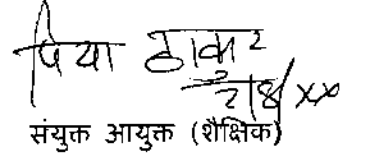 पिया ठाकुर
2/8/xx
संयुक्त आयुक्त (शैक्षिक)